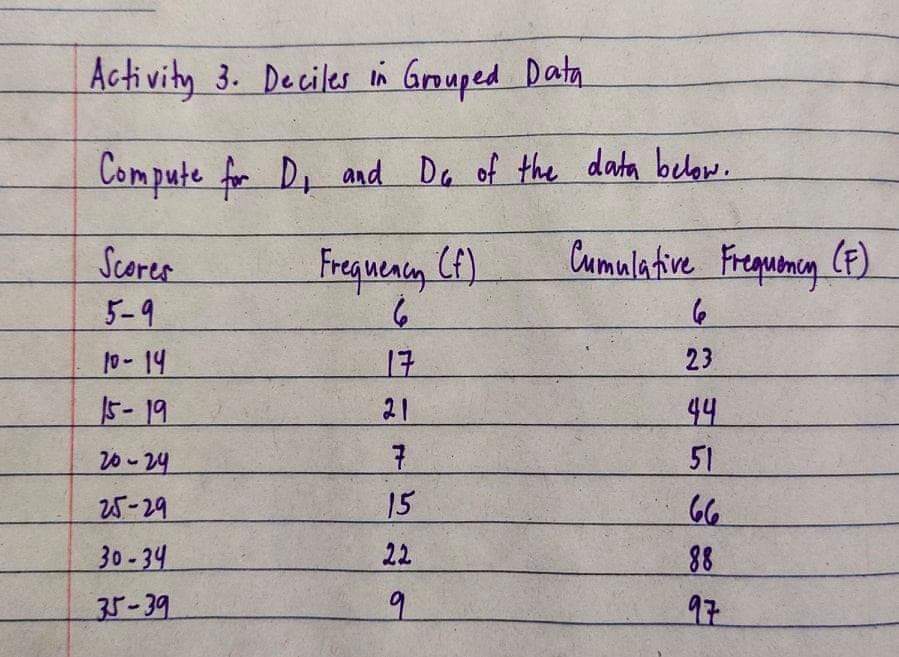 Activity 3. Deciles in Grouped Data
Compute for D₁ and D₆ of the data below.
Scores Frequency (f) Cumulative Frequency (F)
5-9 6 6
10-14 17 23
15-19 21 44
20-24 7 51
25-29 15 66
30-34 22 88
35-39 9 97